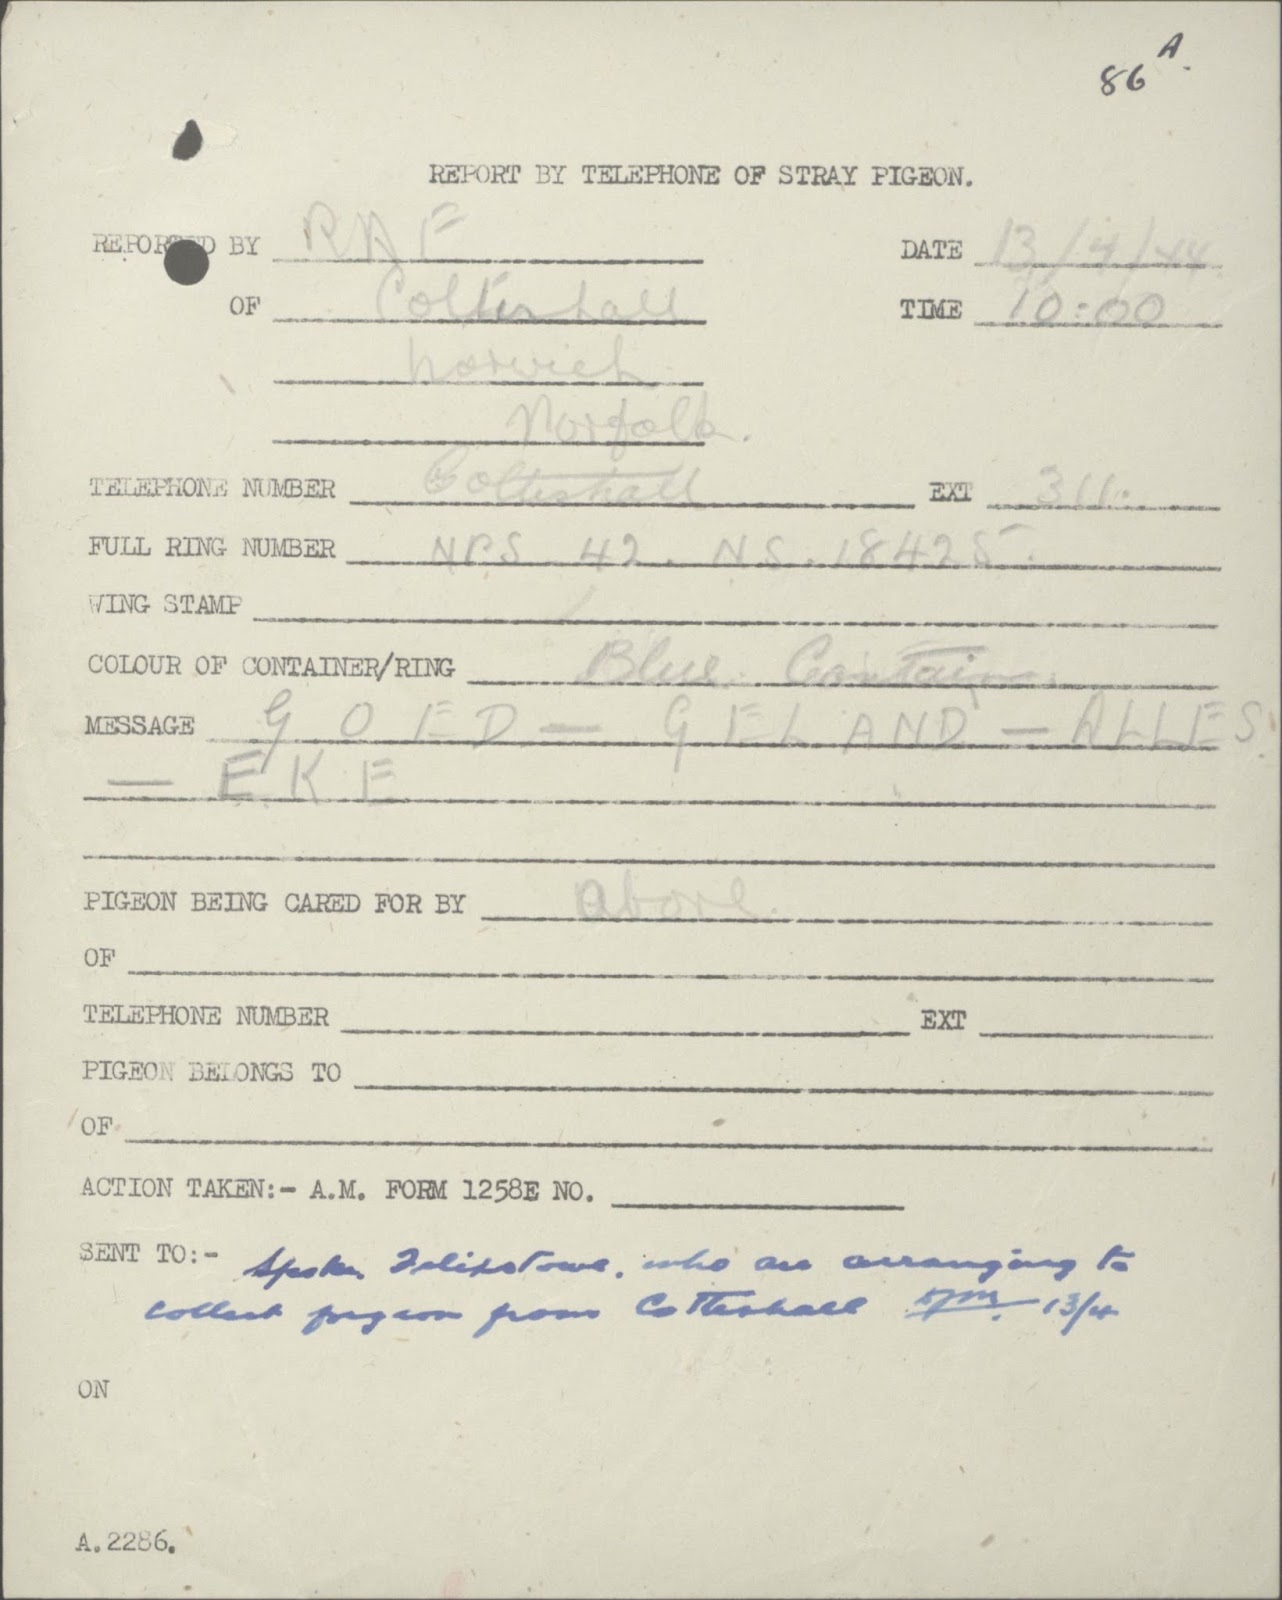 86 A.
REPORT BY TELEPHONE OF STRAY PIGEON.
REPORTED BY RAF DATE 13/4/44
OF Coltishall TIME 10:00
Norwich
Norfolk.
TELEPHONE NUMBER Coltishall EXT 311.
FULL RING NUMBER NPS 42. NS. 18425.
WING STAMP /
COLOUR OF CONTAINER/RING Blue Container.
MESSAGE GOED — GELAND — ALLES
— EKE
PIGEON BEING CARED FOR BY above.
OF
TELEPHONE NUMBER EXT
PIGEON BELONGS TO
OF
ACTION TAKEN:- A.M. FORM 1258E NO.
SENT TO:- Spoken Felixstowe, who are arranging to
collect pigeon from Cotteshall 13/4
ON
A.2286.